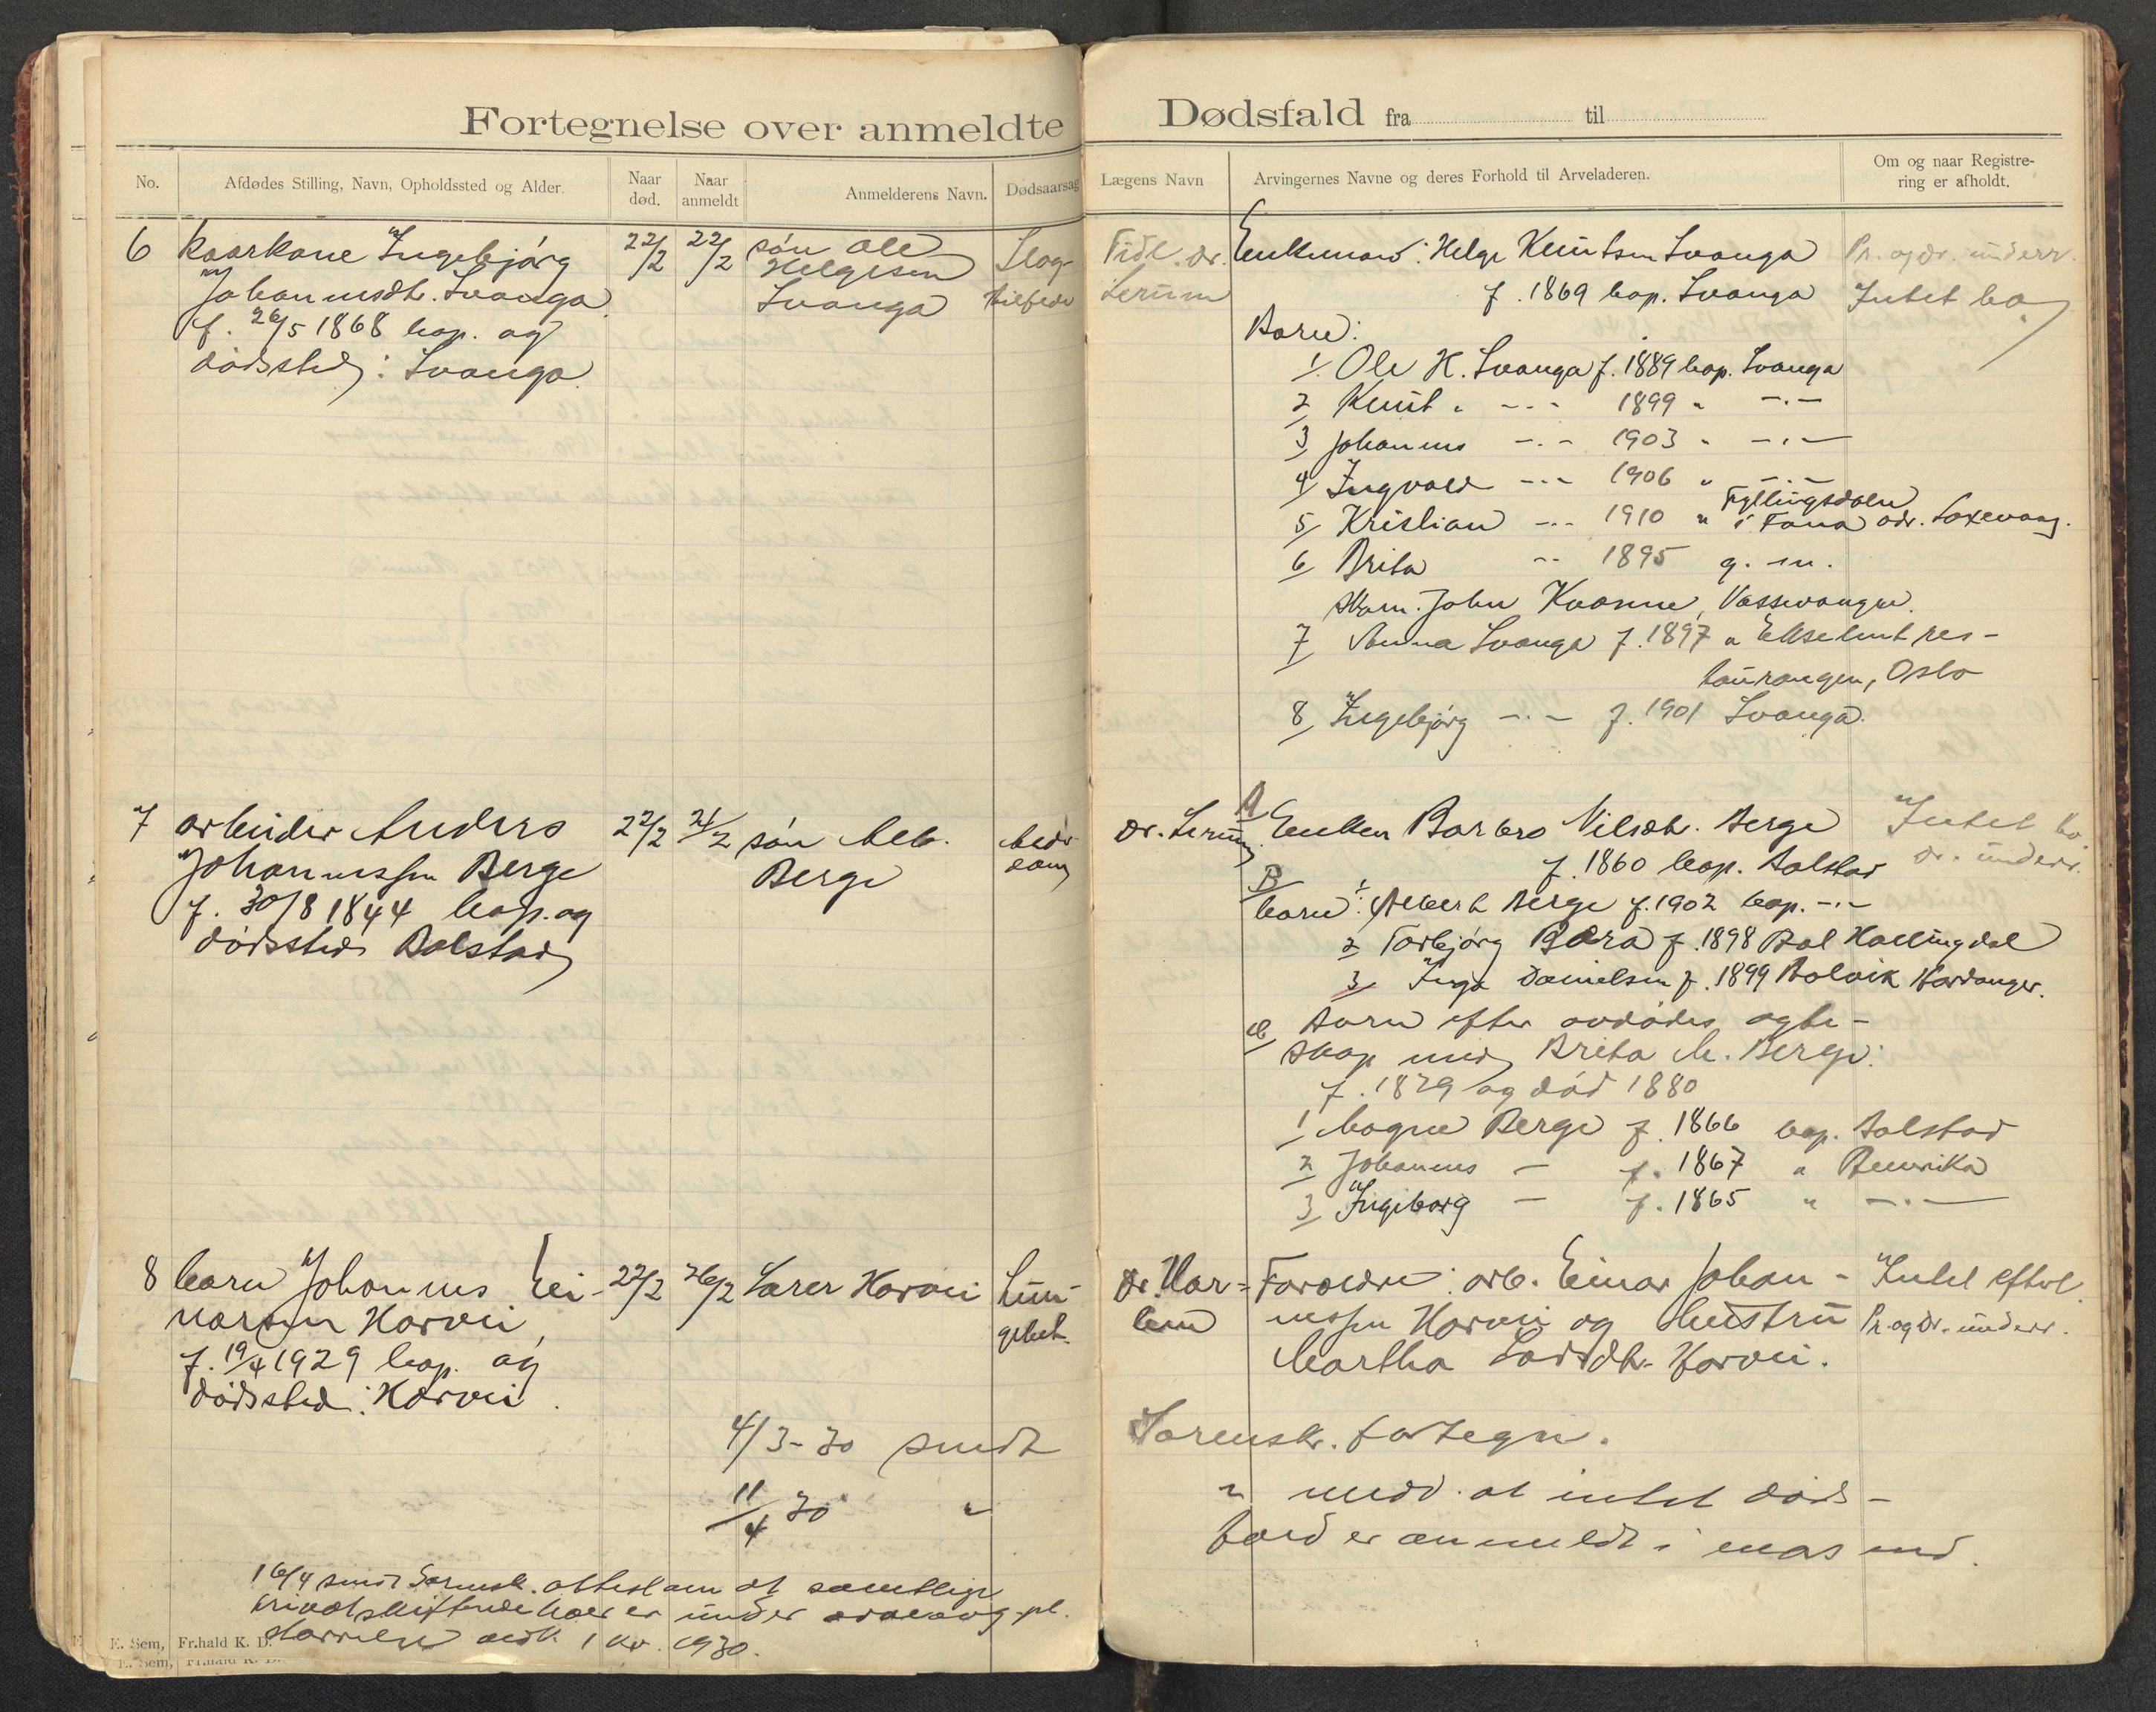 Fortegnelse over anmeldte Dødsfald fra til
No. Afdødes Stilling, Navn, Opholdssted og Alder. Naar død. Naar anmeldt Anmelderens Navn. Dødsaarsag Lægens Navn Arvingernes Navne og deres Forhold til Arveladeren. Om og naar Registrering er afholdt.
6 kaarkone Ingebjørg
Johannesdtr. Svanga
f. 26/5 1868 bop. og
dødssted: Svanga
22/2 22/2 søn Ole
Helgesen
Svanga
Slag-
tilfelde
Fidl. dr.
Lerum
Enkemand: Helge Knutsen Svanga
f. 1869 bop. Svanga
Pr. og dr. underr.
Intet bo
Barn:
1 Ole H. Svanga f. 1889 bop. Svanga
2 Knut " -.- 1899 " -.-
3 Johannes -.- 1903 " -.-
4 Ingvald -.- 1906 " -.-
Fyllingsdalen
5 Kristian -.- 1910 " i Fana adr. Laxevaag.
6 Brita -.- 1895 g. m.
John Kvarme, Vossevangen.
7 Anna Svanga f. 1897 " Ekselent res-
taurangen, Oslo
8 Ingebjørg -.- f. 1901 Svanga.
7 arbeider Anders
Johannessen Berge
f. 30/8 1844 bop. og
dødssted Bolstad
22/2 24/2 søn Alb.
Berge
Alder-
dom
dr. Lerum
A Enken Barbro Nilsdtr. Berge
f. 1860 bop. Bolstad
Intet bo
dr. underr.
B
barn: 1 Albert Berge f. 1902 bop. -.-
2 Torbjørg Bæra f. 1898 Aal Hallingdal
3 Inga Danielsen f. 1899 Aalvik Hardanger.
C Barn efter avdødes egte-
skap med Brita M. Berge:
f. 1829 og død 1880
1 Magne Berge f. 1866 bop. Bolstad
2 Johannes - f. 1867 " Amerika
3 Ingeborg - f. 1865 " -.-
8 barn Johannes Ei-
narsen Horvei,
f. 19/4 1929 bop. og
dødssted: Horvei.
22/2 26/2 Lærer Horvei
Lun-
gebet.
Dr. Mar=
lem
Forældre: arb. Einar Johan-
nessen Horvei og hustru
Martha Larsdtr. Horvei.
Intet efterl.
Pr. og dr. underr.
4/3-30 sendt Sorensk. fortegn.
11/4 30 " " medd. at intet døds-
fald er anmeldt i mars md.
16/4 sendt Sorensk. attest om at samtlige
privatskiftende boer er under
størrelse 1 kv. 1930.
E. Sem, Fr.hald K. D.
E. Sem, Fr.hald K. D.